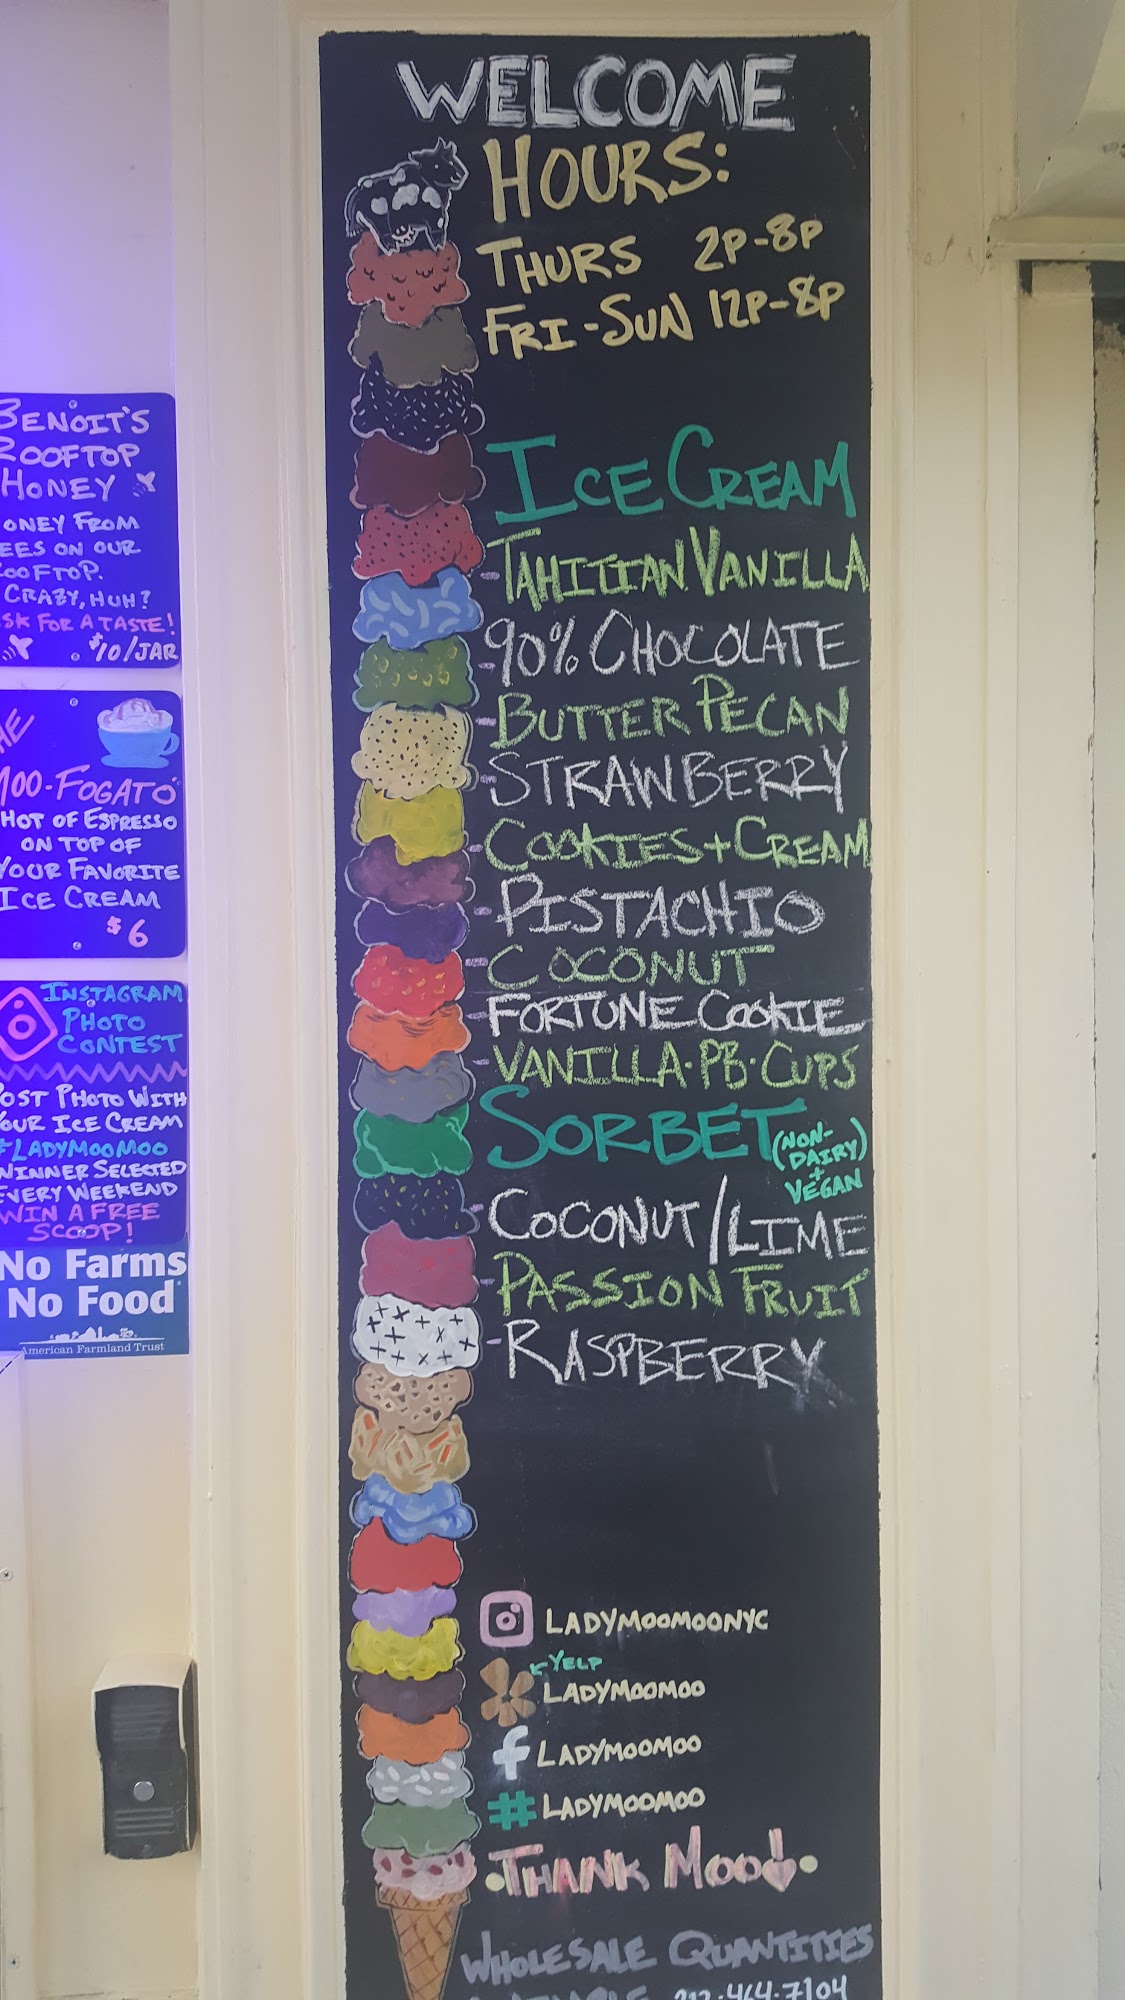 WELCOME
HOURS:
THURS 2P-8P
FRI-SUN 12P-8P
ICE CREAM
-TAHITIAN VANILLA
-90% CHOCOLATE
-BUTTER PECAN
-STRAWBERRY
-COOKIES+CREAM
-PISTACHIO
-COCONUT
-FORTUNE COOKIE
-VANILLA·PB·CUPS
SORBET (NON-
DAIRY)
+
VEGAN
-COCONUT/LIME
-PASSION FRUIT
-RASPBERRY
LADYMOOMOONYC
YELP
LADYMOOMOO
f LADYMOOMOO
# LADYMOOMOO
·THANK MOO!·
WHOLESALE QUANTITIES
464-7104
BENOIT'S
ROOFTOP
HONEY
ONEY FROM
EES ON OUR
OOFTOP.
CRAZY, HUH?
SK FOR A TASTE!
$10/JAR
HE
MOO-FOGATO
HOT OF ESPRESSO
ON TOP OF
YOUR FAVORITE
ICE CREAM
$6
INSTAGRAM
PHOTO
CONTEST
POST PHOTO WITH
YOUR ICE CREAM
#LADYMOOMOO
WINNER SELECTED
EVERY WEEKEND
WIN A FREE
SCOOP!
No Farms
No Food
American Farmland Trust